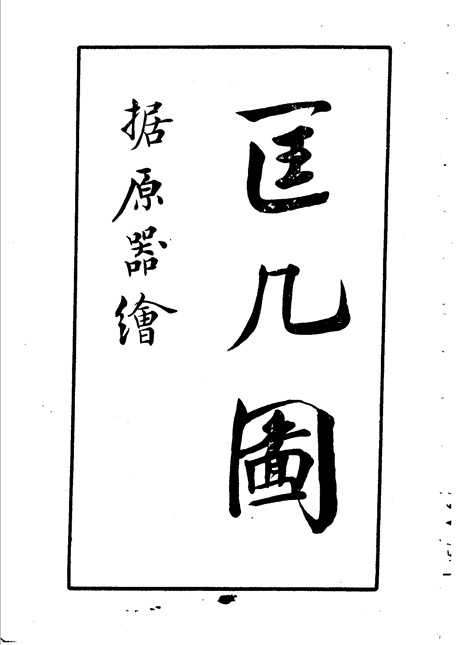 匡几圖
据原器繪